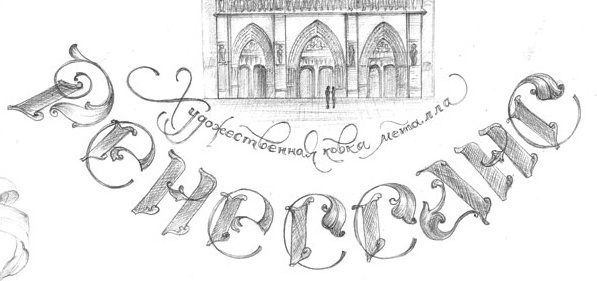 Художественная ковка металла
Ренессанс